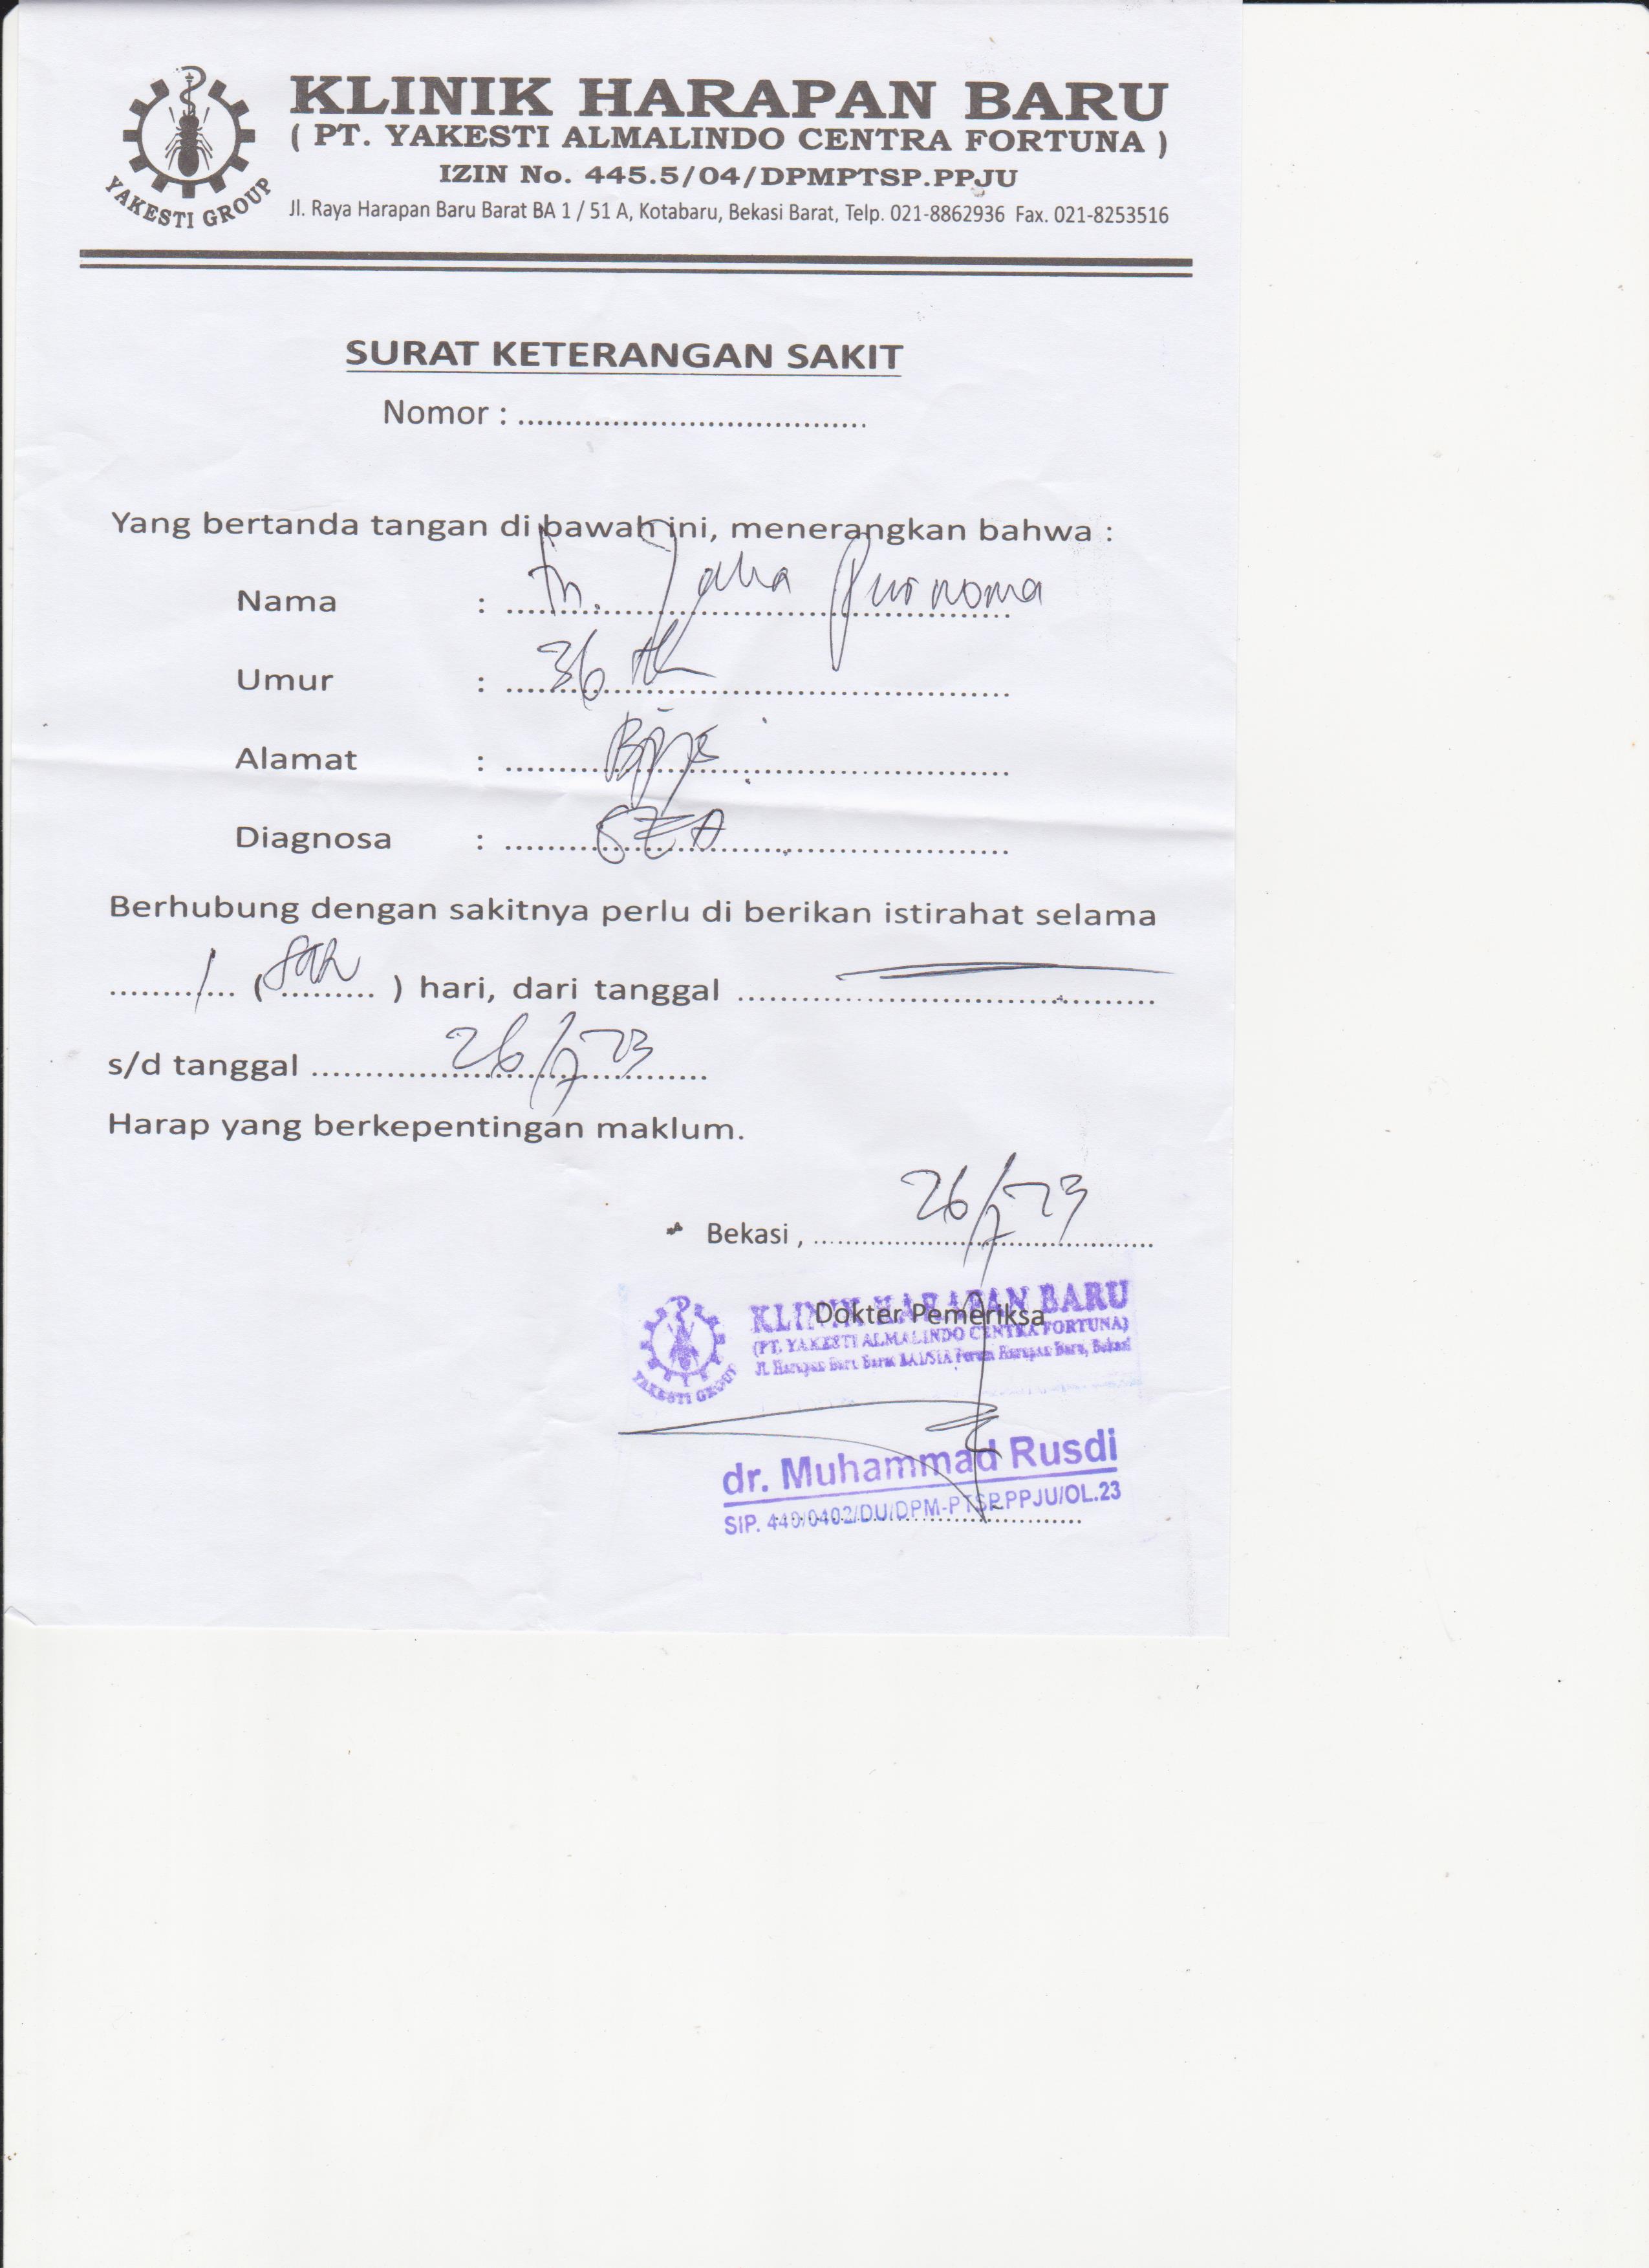 KLINIK HARAPAN BARU
( PT. YAKESTI ALMALINDO CENTRA FORTUNA )
IZIN No. 445.5/04/DPMPTSP.PPJU
Jl. Raya Harapan Baru Barat BA 1 / 51 A, Kotabaru, Bekasi Barat, Telp. 021-8862936 Fax. 021-8253516
YAKESTI GROUP
SURAT KETERANGAN SAKIT
Nomor : ....................................
Yang bertanda tangan di bawah ini, menerangkan bahwa :
Nama : Tn. Purnoma
Umur : 36 th
Alamat :
Diagnosa :
Berhubung dengan sakitnya perlu di berikan istirahat selama
1 ( ) hari, dari tanggal
s/d tanggal 26/7 23
Harap yang berkepentingan maklum.
Bekasi , 26/7 23
Dokter Pemeriksa
KLINIK HARAPAN BARU
(PT. YAKESTI ALMALINDO CENTRA FORTUNA)
Jl. Harapan Baru Barat BA1/51A Perum Harapan Baru, Bekasi
YAKESTI GROUP
dr. Muhammad Rusdi
SIP. 440/0402/DU/DPM-PTSP.PPJU/OL.23